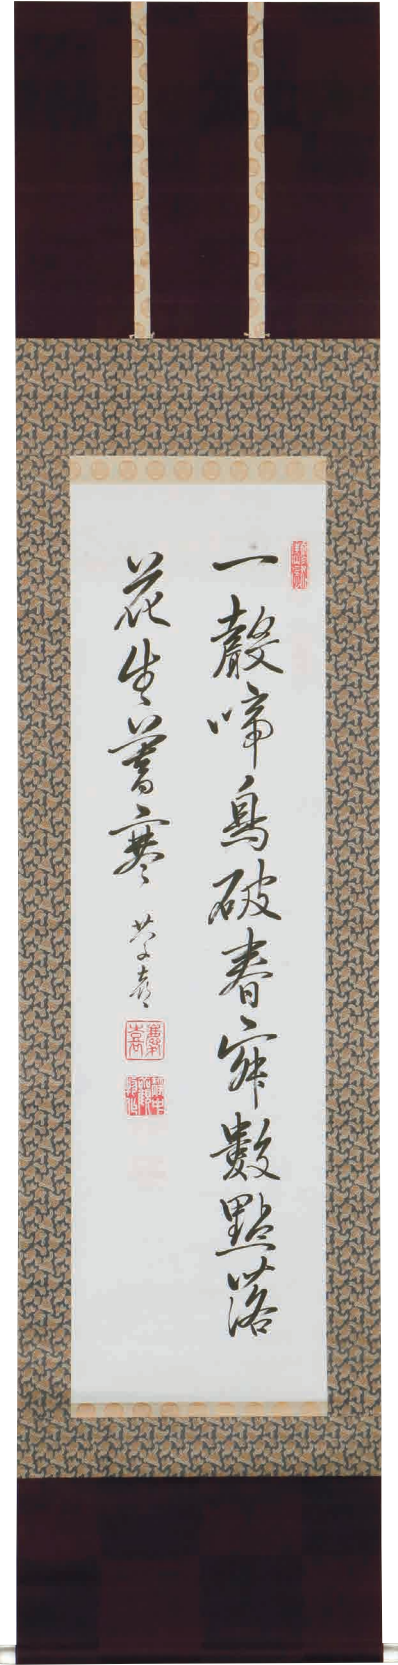 一聲啼鳥破春寂數點落
花生暮寒